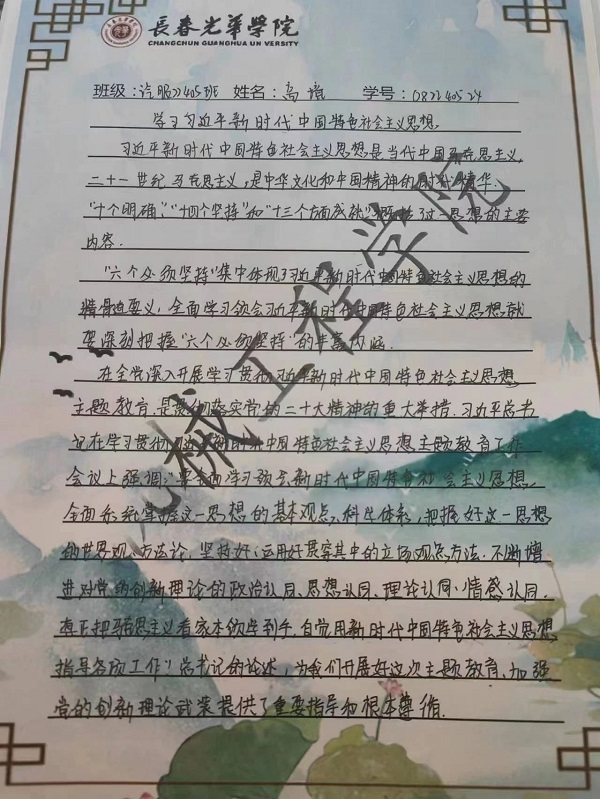 長春光華學院
CHANGCHUN GUANGHUA UNIVERSITY
班级:汽服22405班 姓名:高 学号:082240524
学习习近平新时代中国特色社会主义思想
习近平新时代中国特色社会主义思想是当代中国马克思主义,
二十一世纪马克思主义,是中华文化和中国精神的时代精华.
"十个明确","十四个坚持"和"十三个方面成就"概括了这一思想的主要
内容.
"六个必须坚持"集中体现习近平新时代中国特色社会主义思想的
精骨边要义,全面学习领会习近平新时代中国特色社会主义思想就
要深刻把握"六个必须坚持"的丰富内涵.
在全党深入开展学习贯彻习近平新时代中国特色社会主义思想,
主题教育,是贯彻落实党的二十大精神的重大举措.习近平总书
记在学习贯彻习近平新时代中国特色社会主义思想主题教育工作
会议上强调:"要全面学习领会新时代中国特色社会主义思想,
全面系统掌握这一思想的基本观点、科学体系,把握好这一思想
的世界观、方法论,坚持好、运用好贯穿其中的立场观点方法.不断增
进对党的创新理论的政治认同、思想认同、理论认同、情感认同,
真正把马思主义看家本领学到手,自觉用新时代中国特色社会主义思想
指导各项工作."总书记的论述,为我们开展好这次主题教育、加强
党的创新理论武装提供了重要指导和根本遵循.
机械工程学院